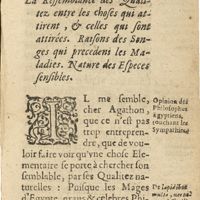 La Ressemblance des Quali-
tez entre les choses qui at-
tirent, & celles qui sont
attirées. Raisons des Son-
ges qui precedens les Ma-
ladies. Nature des Especes
sensibles.
IL me semble,
cher Agathon,
que ce n'est pas
trop entrepren-
dre, que de vou-
loir faire voir qu'vne chose Ele-
mentaire se porte à chercher son
semblable, par ses Qualitez na-
turelles : Puisque les Mages
d'Egypte, grans & celebres Phi-
Opinion des
Philosophes
Egyptiens,
touchant les
Sympathies
De lapidibus